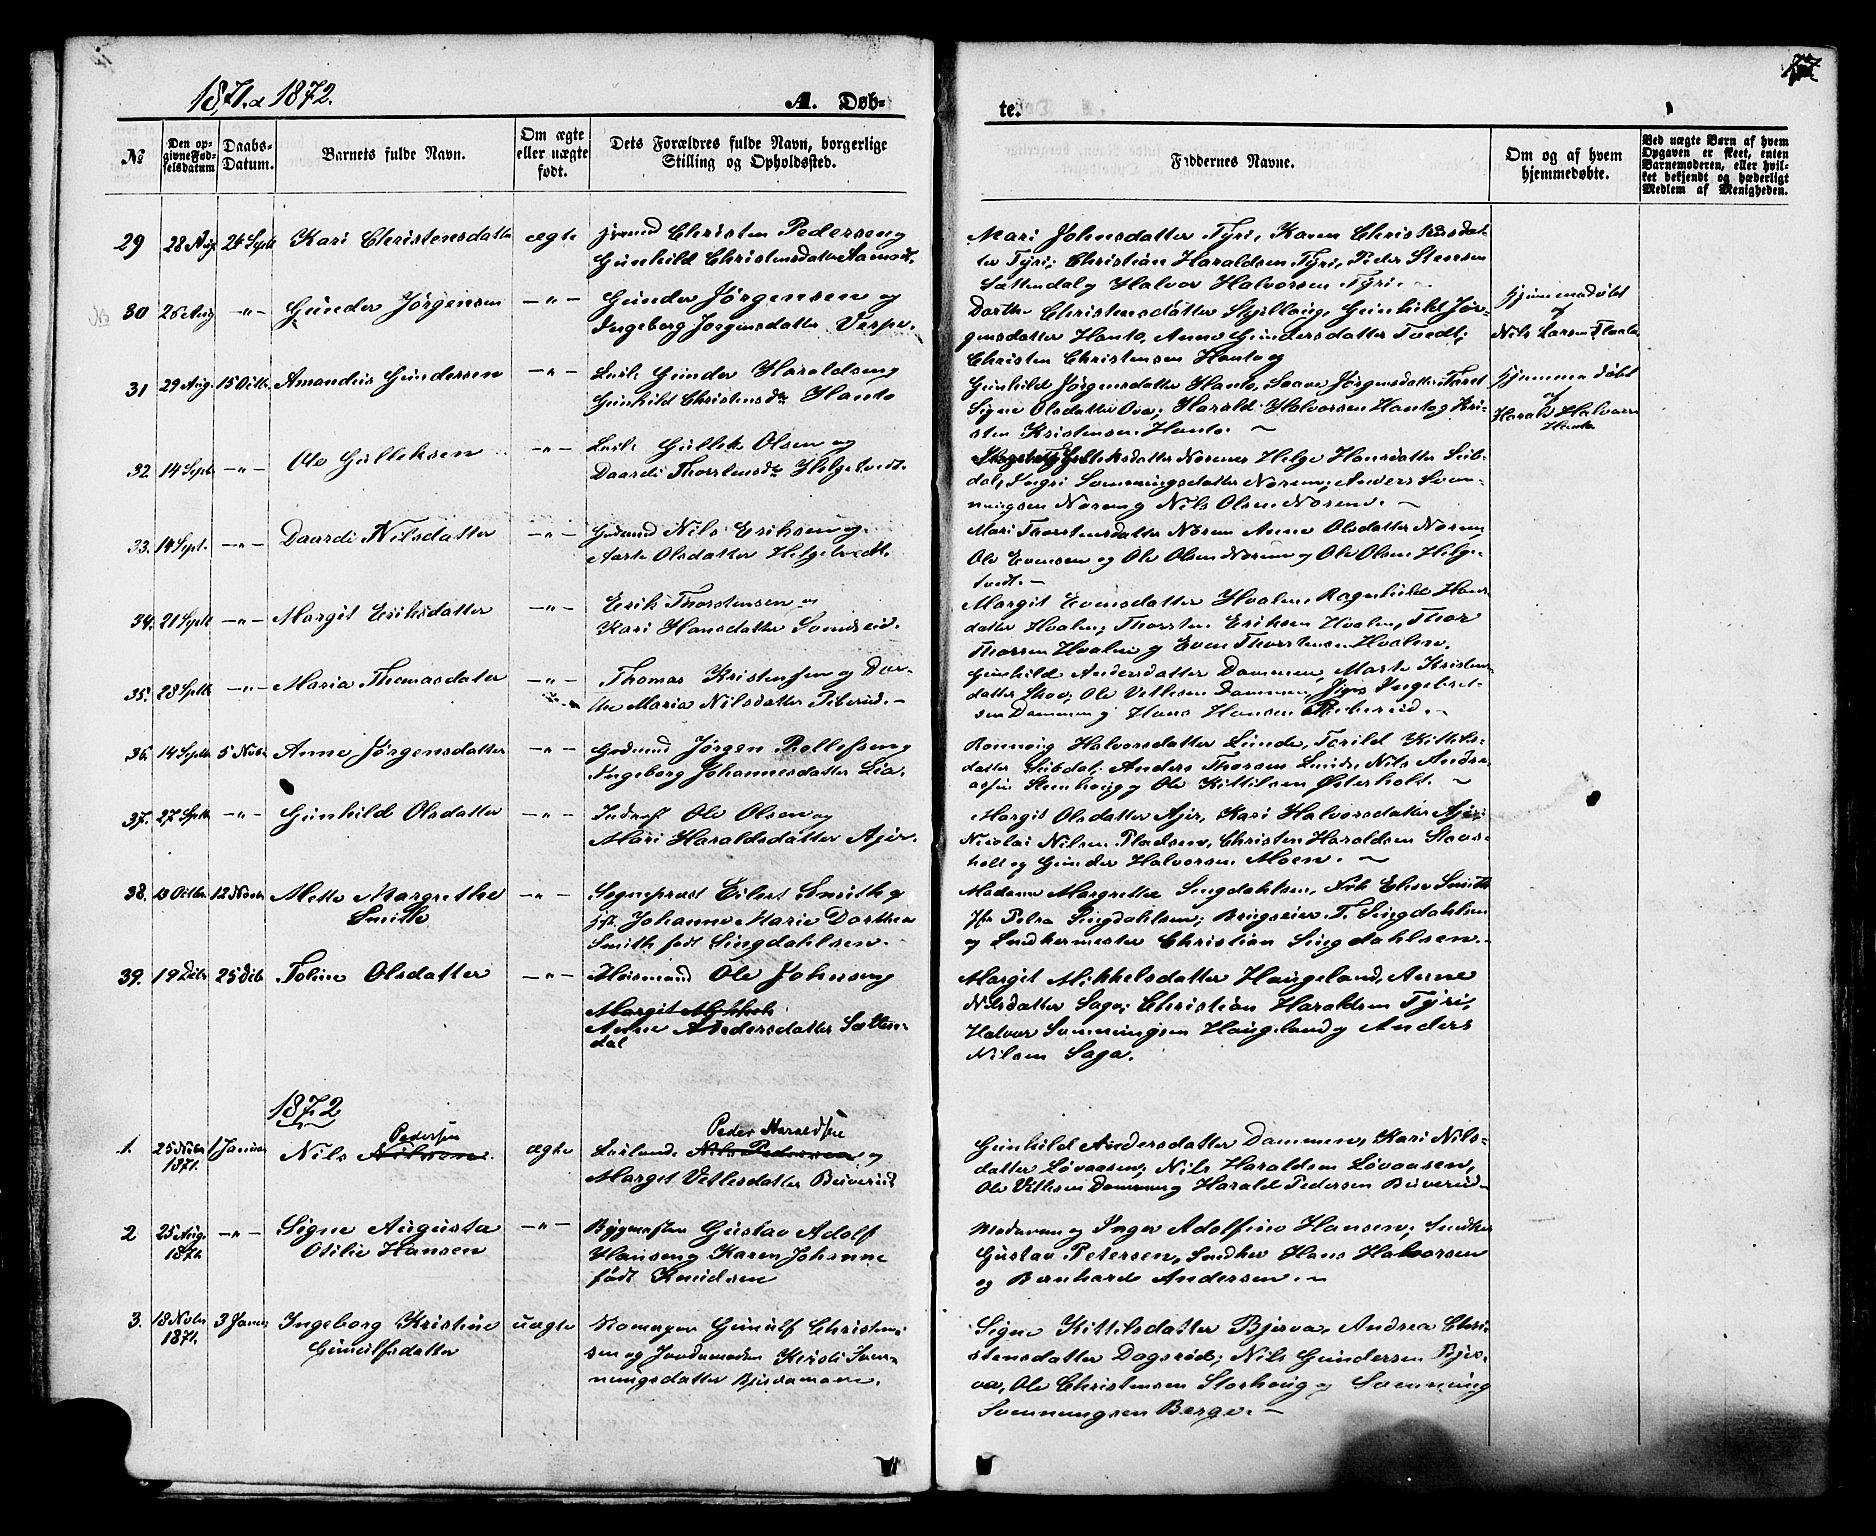 1871 & 1872.
A. Døb-
te.
77
№
Den op-
givne Fød-
selsdatum
Daabs-
Datum.
Barnets fulde Navn.
Om ægte
eller uægte
født.
Dets Forældres fulde Navn, borgerlige
Stilling og Opholdssted.
Faddernes Navne.
Om og af hvem
hjemmedøbte.
Ved uægte Børn af hvem
Opgaven er skeet, enten
Barnemoderen, eller hvil-
ket bekjendt og hæderligt
Medlem af Menigheden.
29
28 Aug
24 Septr
Kari Christensdatter
ægte
Christen Pedersen og
Gunhild Christensdatter Aamodt.
Mari Johnsdatter Tyri, Karen Christensdat-
ter Tyri; Christian Haraldsen Tyri, Peder Stensen
Sattendal og Halvor Halvorsen Tyri
30
26 Aug
-"-
Gunder Jørgensen
-"-
Gunder Jørgensen og
Ingeborg Jørgensdatter Verpe.
Dorthe Christensdatter Gunhild Jør-
gensdatter Hanto, Anne Gundersdatter Tvedt;
Christen Christensen Hanto og
Hjemmedøbt
af
Nils Larsen
31
29 Aug.
15 Octb.
Amandus Gundersen
-"-
Gunder Haraldsen og
Gunhild Christensdr Hanto
Gunhild Jørgensdatter Hanto, Jørgensdatter
Signe Olsdatter Harald Halvorsen Hanto og Kri-
sten Kristensen Hanto. ~
Hjemmedøbt
af
Harald Halvorsen
Hanto
32.
14 Septr
-"-
Ole Gulleksen
-"-
Gullek Olsen og
Daardi Thorstensdr Helgetvedt.
Gulleksdatter Helge Hansdatter
Ingri Sønnningsdatter Noreim; Anders Søn-
ningsen Noreim og Nils Olsen Noreim. ~
33.
14 Sept.
-"-
Daardi Nilsdatter
-"-
Grdmd Nils Eriksen og
Aaste Olsdatter Helgetvedt.
Mari Thorstensdatter Noreim Anne Olsdatter Noreim
Ole Evensen og Ole Olsen Noreim og Ole Olsen Helge-
tvedt. ~
34.
21 Septr
-"-
Margit Eriksdatter
-"-
Erik Thorstensen og
Kari Hansdatter
Margit Evensdatter Hvalen, Ragnhild Hans-
datter Hvalen; Thorsten Eriksen Hvalen, Thor
Thorsen Hvalen og Even Thorstensen Hvalen.
35.
28 Septr
-"-
Maria Thomasdatter
-"-
Thomas Kristensen og Dor-
the Maria Nilsdatter Piberud. ~
Gunhild Andersdatter Dammen, Marte Kristens-
datter Skov, Ole Vetlesen Dammen, Ingebret-
sen Dammen og Hans Hansen Piberud. ~
36.
14 Septr
5 Novbr
Anne Jørgensdatter
-"-
Grdmnd Jørgen Rollefsen og
Ingeborg Johannesdatter Lia.
Rønnoug Halvorsdatter Lunde, Torild Kittels-
datter Anders Thorsen Lunde, Nils Andre-
assen Steenhoug og Ole Kittilsen Østerholt. ~
37.
27 Septr
-"-
Gunhild Olsdatter
-"-
Inderst Ole Olsen og
Mari Haraldsdatter Ajer.
Margit Olsdatter Ajer, Kari Halvorsdatter Ajer;
Nicolai Nilsen Pladsen, Christen Haraldsen Staas-
holt og Gunder Halvorsen Moen. ~
38.
13 Octbr
12 Novbr
Mette Margrethe
Smith
-"-
Sognepræst Eilert Smith og
Johanne Marie Dorthea
Smith født Singdahlsen.
Madame Margrethe Singdahlsen, Frk Elise Smith
Petra Singdahlsen; Brugseier T. Singdahlsen
og Snedkermester Christian Singdahlsen.
39.
19 Debr
25 Deb
Toline Olsdatter
-"-
Huusmand Ole Johnsen og
Margit Mikkels
Anne Andersdatter Sætten-
dal
Margit Mikkelsdatter Haugeland, Anne
Nilsdatter Saga; Christian Haraldsen Tyri,
Halvor Sønningsen Haugeland og Anders
Nilsen Saga.
1872
1.
25 Novbr
1871.
1 Januar
Pedersen
Nils Nilsen.
ægte
Peder Haraldsen
Nils Pedersen og
Marget Vetlesdatter Buverud
Gunhild Andersdatter Dammen, Kari Nils-
datter Løvaasen; Nils Haraldsen Løvaasen,
Ole Vetlesen Dammen og Harald Pedersen Buverud
2
25 Aug.
1871.
-"-
Signe Augusta
Otilie Hansen
-"-
Bygmester Gustav Adolf
Hansen og Karen Johanne
født Knudsen
Madammen og Inger Adolfine Hansen; Snedker
Gustav Petersen, Snedker Hans Halvorsen
og Bernhard Andersen. ~
3.
18 Novbr
1871.
3 Januar
Ingeborg Kristine
Gunulfsdatter
uægte
Gunulf Christen-
sen og Kirsti Søn-
nungsdatter
Signe Kittelsdatter Bjerva, Andrea Chri-
stensdatter Dagsrød; Nils Gundersen Bjer-
va, Ole Christensen Storhoug og Sønnung
Sønnungsen Berge. ~